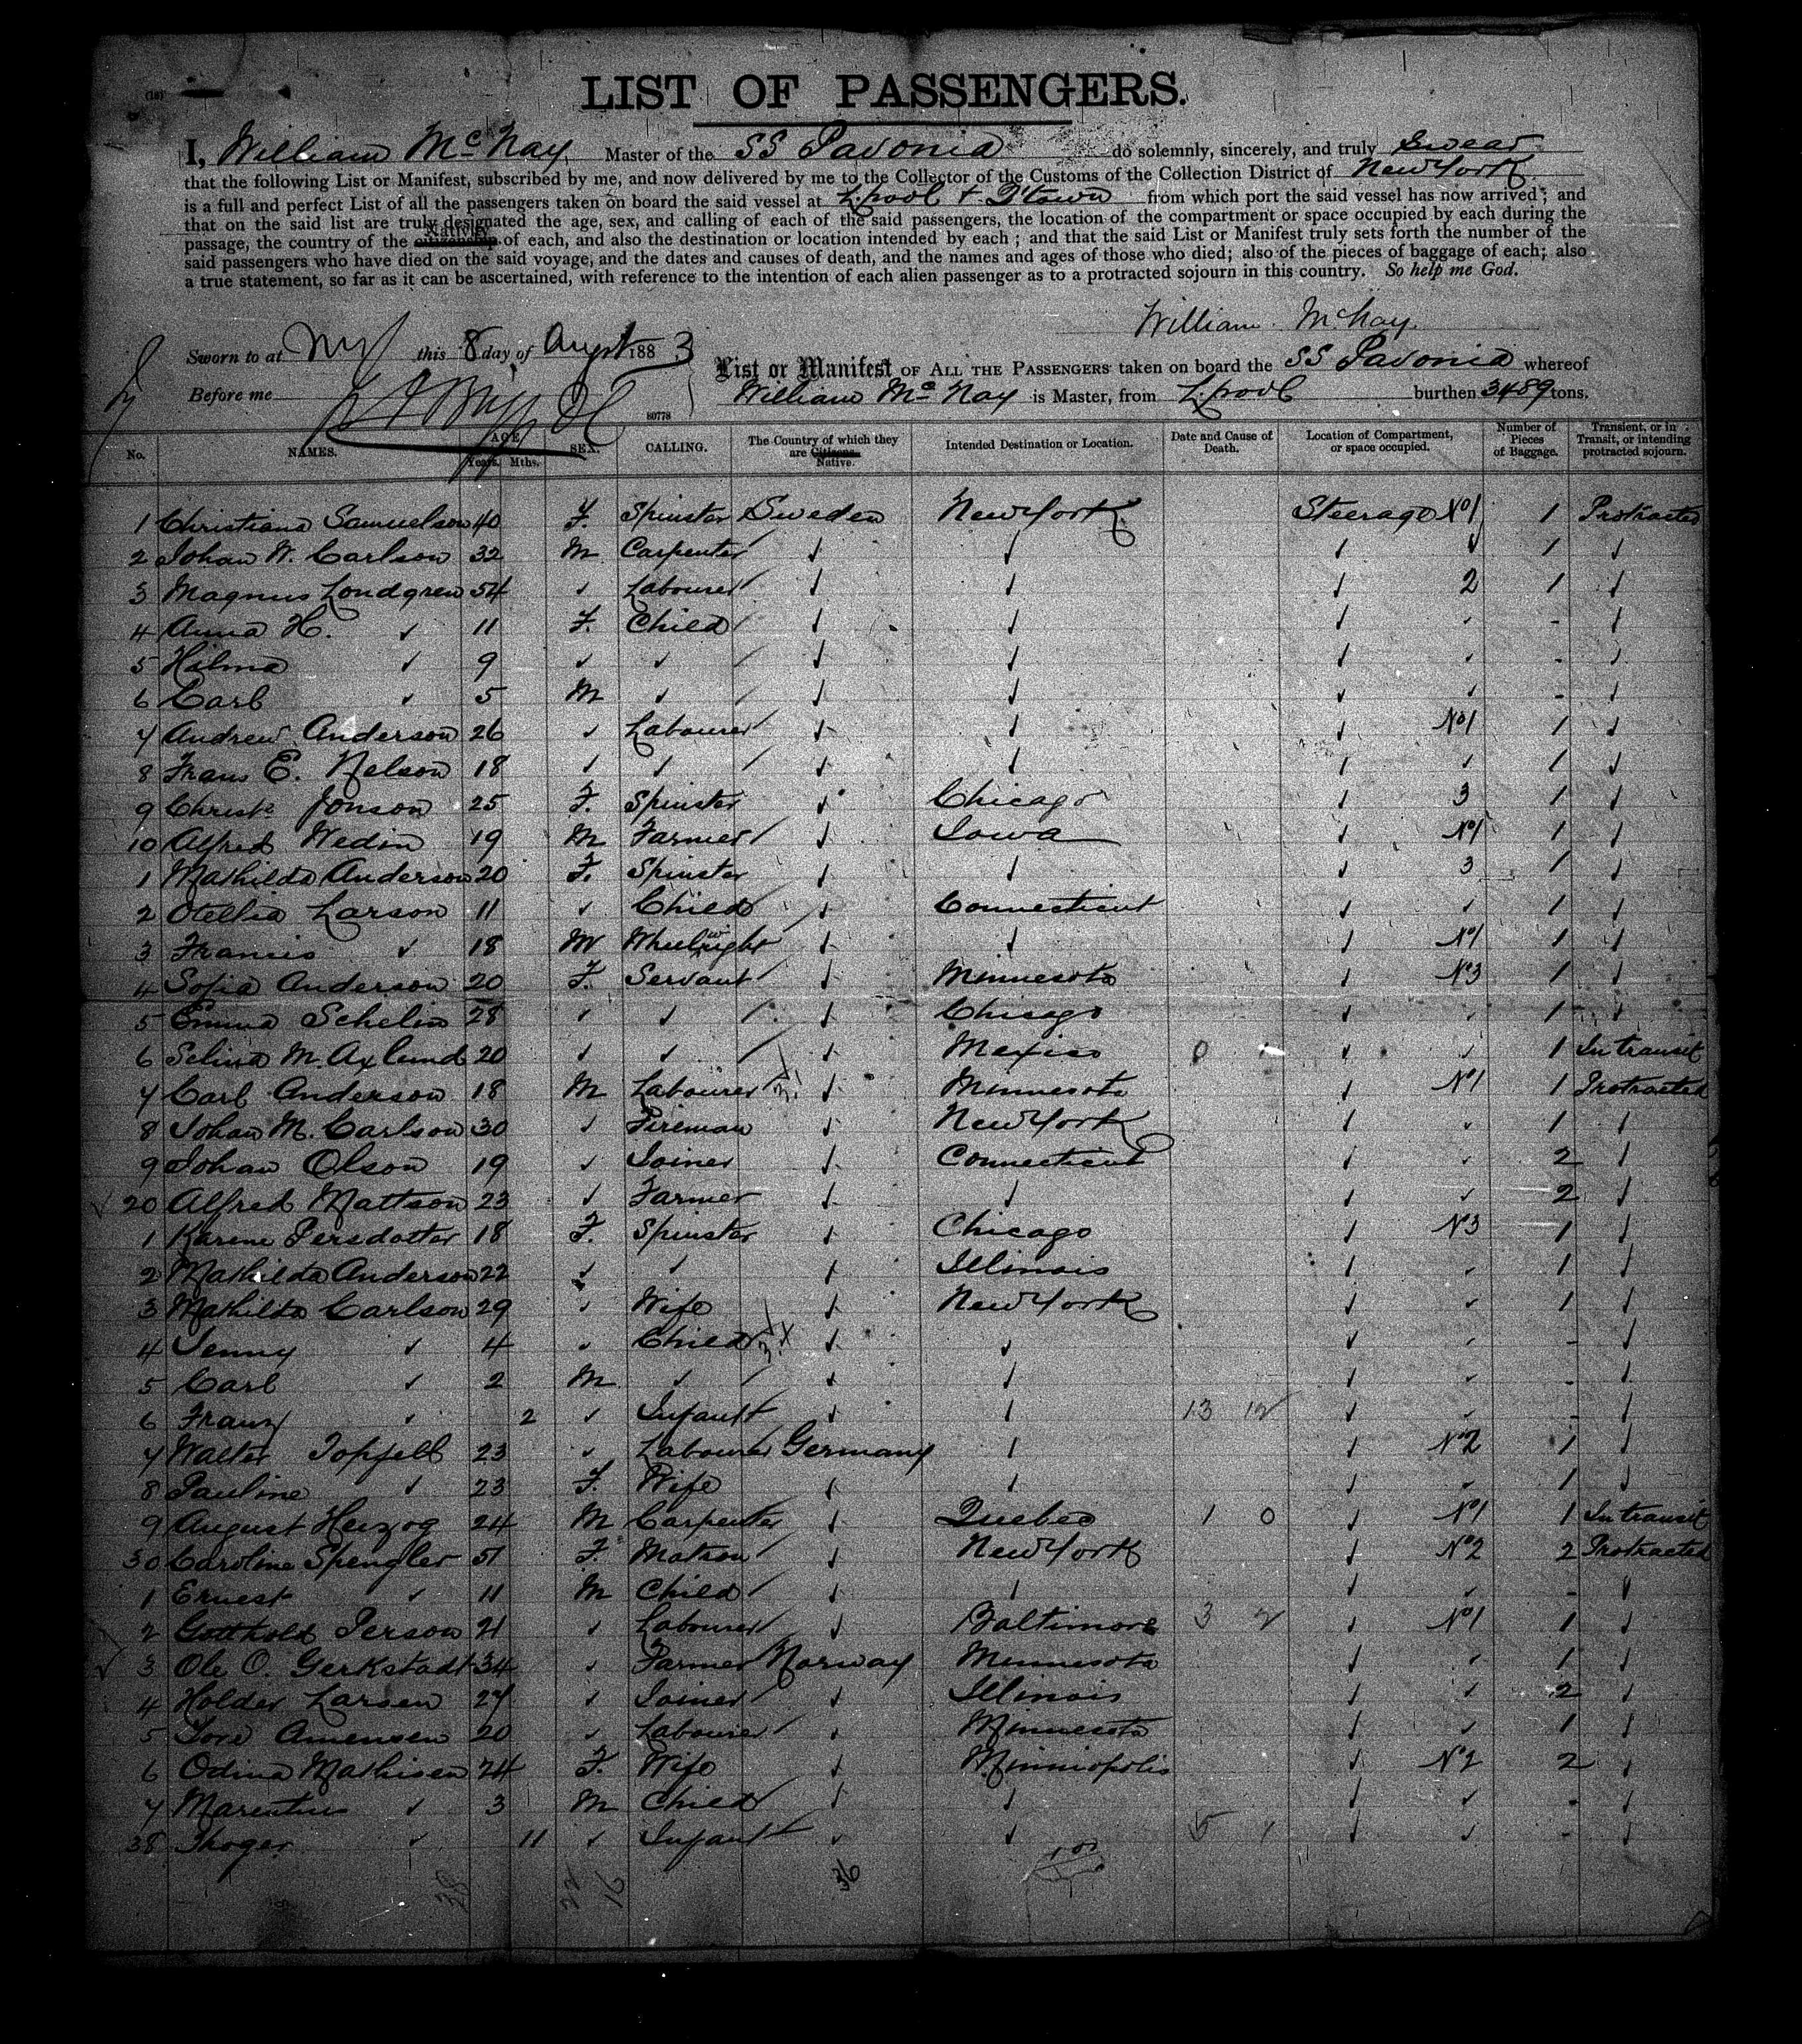 (18)
LIST OF PASSENGERS.
I, William McNay, Master of the SS Pavonia do solemnly, sincerely, and truly Swear
that the following List or Manifest, subscribed by me, and now delivered by me to the Collector of the Customs of the Collection District of New York
is a full and perfect List of all the passengers taken on board the said vessel at L'pool & Q'town from which port the said vessel has now arrived; and
that on the said list are truly designated the age, sex, and calling of each of the said passengers, the location of the compartment or space occupied by each during the
Nativity
passage, the country of the citizenship of each, and also the destination or location intended by each; and that the said List or Manifest truly sets forth the number of the
said passengers who have died on the said voyage, and the dates and causes of death, and the names and ages of those who died; also of the pieces of baggage of each; also
a true statement, so far as it can be ascertained, with reference to the intention of each alien passenger as to a protracted sojourn in this country. So help me God.
William McNay
Sworn to at NY this 8 day of August 1883
List or Manifest OF ALL THE PASSENGERS taken on board the SS Pavonia whereof
Before me
William McNay is Master, from L'pool burthen 3489 tons.
80778
No. NAMES. AGE Years. Mths. SEX. CALLING. The Country of which they are Citizens. Native. Intended Destination or Location. Date and Cause of Death. Location of Compartment, or space occupied. Number of Pieces of Baggage. Transient, or in Transit, or intending protracted sojourn.
1 Christiana Samuelson 40 F. Spinster Sweden New York Steerage No1 1 Protracted
2 Johan W. Carlson 32 M Carpenter ✓ ✓ ✓ ✓ 1 ✓
3 Magnus Londgren 54 ✓ Labourer ✓ ✓ ✓ 2 1 ✓
4 Anna H. ✓ 11 F. Child ✓ ✓ ✓ ✓ - ✓
5 Hilma ✓ 9 ✓ ✓ ✓ ✓ ✓ ✓ - ✓
6 Carl ✓ 5 M ✓ ✓ ✓ ✓ ✓ - ✓
7 Andrew Anderson 26 ✓ Labourer ✓ ✓ ✓ No1 1 ✓
8 Frans E. Nelson 18 ✓ ✓ ✓ ✓ ✓ ✓ 1 ✓
9 Christe Jonson 25 F. Spinster ✓ Chicago ✓ 3 1 ✓
10 Alfred Wedin 19 M Farmer ✓ Iowa ✓ No1 1 ✓
1 Mathilda Anderson 20 F. Spinster ✓ ✓ ✓ 3 1 ✓
2 Otellia Larson 11 ✓ Child ✓ Connecticut ✓ ✓ 1 ✓
3 Francis ✓ 18 M Wheelwright ✓ ✓ ✓ No1 1 ✓
4 Sofia Anderson 20 F. Servant ✓ Minnesota ✓ No3 1 ✓
5 Emma Schelin 28 ✓ ✓ ✓ Chicago ✓ ✓ 1 ✓
6 Selina M. Axlund 20 ✓ ✓ ✓ Mexico 0 ✓ ✓ 1 In transit
7 Carl Anderson 18 M Labourer ✓ Minnesota ✓ No1 1 Protracted
8 Johan M. Carlson 30 ✓ Fireman ✓ New York ✓ ✓ 1 ✓
9 Johan Olson 19 ✓ Joiner ✓ Connecticut ✓ ✓ 2 ✓
20 Alfred Mattson 23 ✓ Farmer ✓ ✓ ✓ ✓ 2 ✓
1 Karene Persdotter 18 F. Spinster ✓ Chicago ✓ No3 1 ✓
2 Mathilda Anderson 22 ✓ ✓ ✓ Illinois ✓ ✓ 1 ✓
3 Mathilda Carlson 29 ✓ Wife ✓ New York ✓ ✓ 1 ✓
4 Jenny ✓ 4 ✓ Child ✓ ✓ ✓ ✓ - ✓
5 Carl ✓ 2 M ✓ ✓ ✓ ✓ ✓ - ✓
6 Franz ✓ 2 ✓ Infant ✓ ✓ 13 12 ✓ ✓ - ✓
7 Walter Topfell 23 ✓ Labourer Germany ✓ ✓ No2 1 ✓
8 Pauline ✓ 23 F. Wife ✓ ✓ ✓ ✓ 1 ✓
9 August Herzog 24 M Carpenter ✓ Quebec 1 0 ✓ No1 1 In transit
30 Caroline Spengler 51 F. Matron ✓ New York ✓ No2 2 Protracted
1 Ernest ✓ 11 M Child ✓ ✓ ✓ ✓ - ✓
2 Gotthold Person 21 ✓ Labourer ✓ Baltimore 3 2 ✓ No1 1 ✓
3 Ole O. Gerkstadt 34 ✓ Farmer Norway Minnesota ✓ ✓ 1 ✓
4 Holder Larsen 27 ✓ Joiner ✓ Illinois ✓ ✓ 2 ✓
5 Tore Amensen 20 ✓ Labourer ✓ Minnesota ✓ ✓ 1 ✓
6 Odina Mathisen 24 F. Wife ✓ Minniopolis ✓ No2 2 ✓
7 Marentius ✓ 3 M Child ✓ ✓ ✓ ✓ - ✓
38 Thoger ✓ 11 ✓ Infant ✓ ✓ 5 1 ✓ ✓ - ✓
38 22 16 36